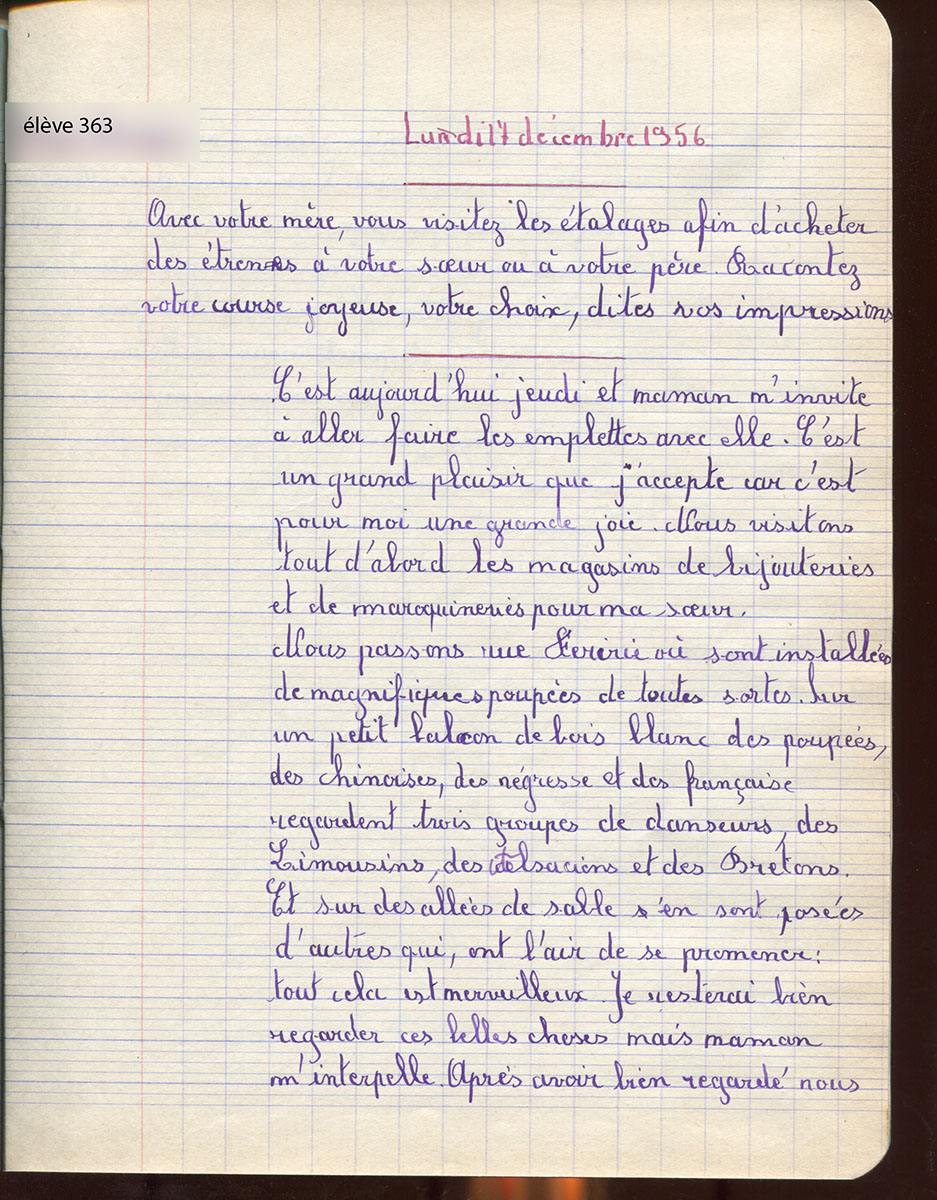 élève 363
Lundi 17 décembre 1956
Avec votre mère, vous visitez les étalages afin d'acheter
des étrennes à votre sœur ou à votre père. Racontez
votre course joyeuse, votre choix, dites vos impressions
C'est aujourd'hui jeudi et maman m'invite
à aller faire les emplettes avec elle. C'est
un grand plaisir que j'accepte car c'est
pour moi une grande joie. Nous visitons
tout d'abord les magasins de bijouteries
et de maroquineries pour ma sœur.
Nous passons rue Ferrerie où sont installées
de magnifiques poupées de toutes sortes. Sur
un petit balcon de bois blanc des poupées,
des chinoises, des négresse et des française
regardent trois groupes de danseurs, des
Limousins, des Alsaciens et des Bretons.
Et sur des allées de sable s'en sont posées
d'autres qui, ont l'air de se promener:
tout cela est merveilleux. Je resterai bien
regarder ces belles choses mais maman
m'interpelle. Après avoir bien regardé nous